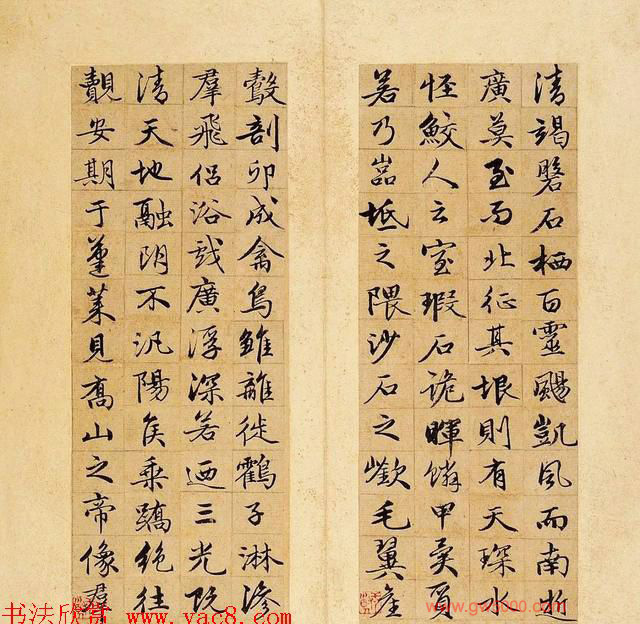 清竭磐石栖百靈颺凱風而南逝
廣莫至而北征其垠則有天琛水
怪鮫人之室瑕石詭暉鱗甲異質
若乃嵒坻之隈沙石之嶔毛翼產
鷇剖卵成禽鳧雛離徙鶴子淋滲
羣飛侶浴戲廣浮深若迺三光既
清天地融朗不汎陽侯乘蹻絕往
覿安期于蓬萊見喬山之帝像羣
书法欣赏 www.yac8.com